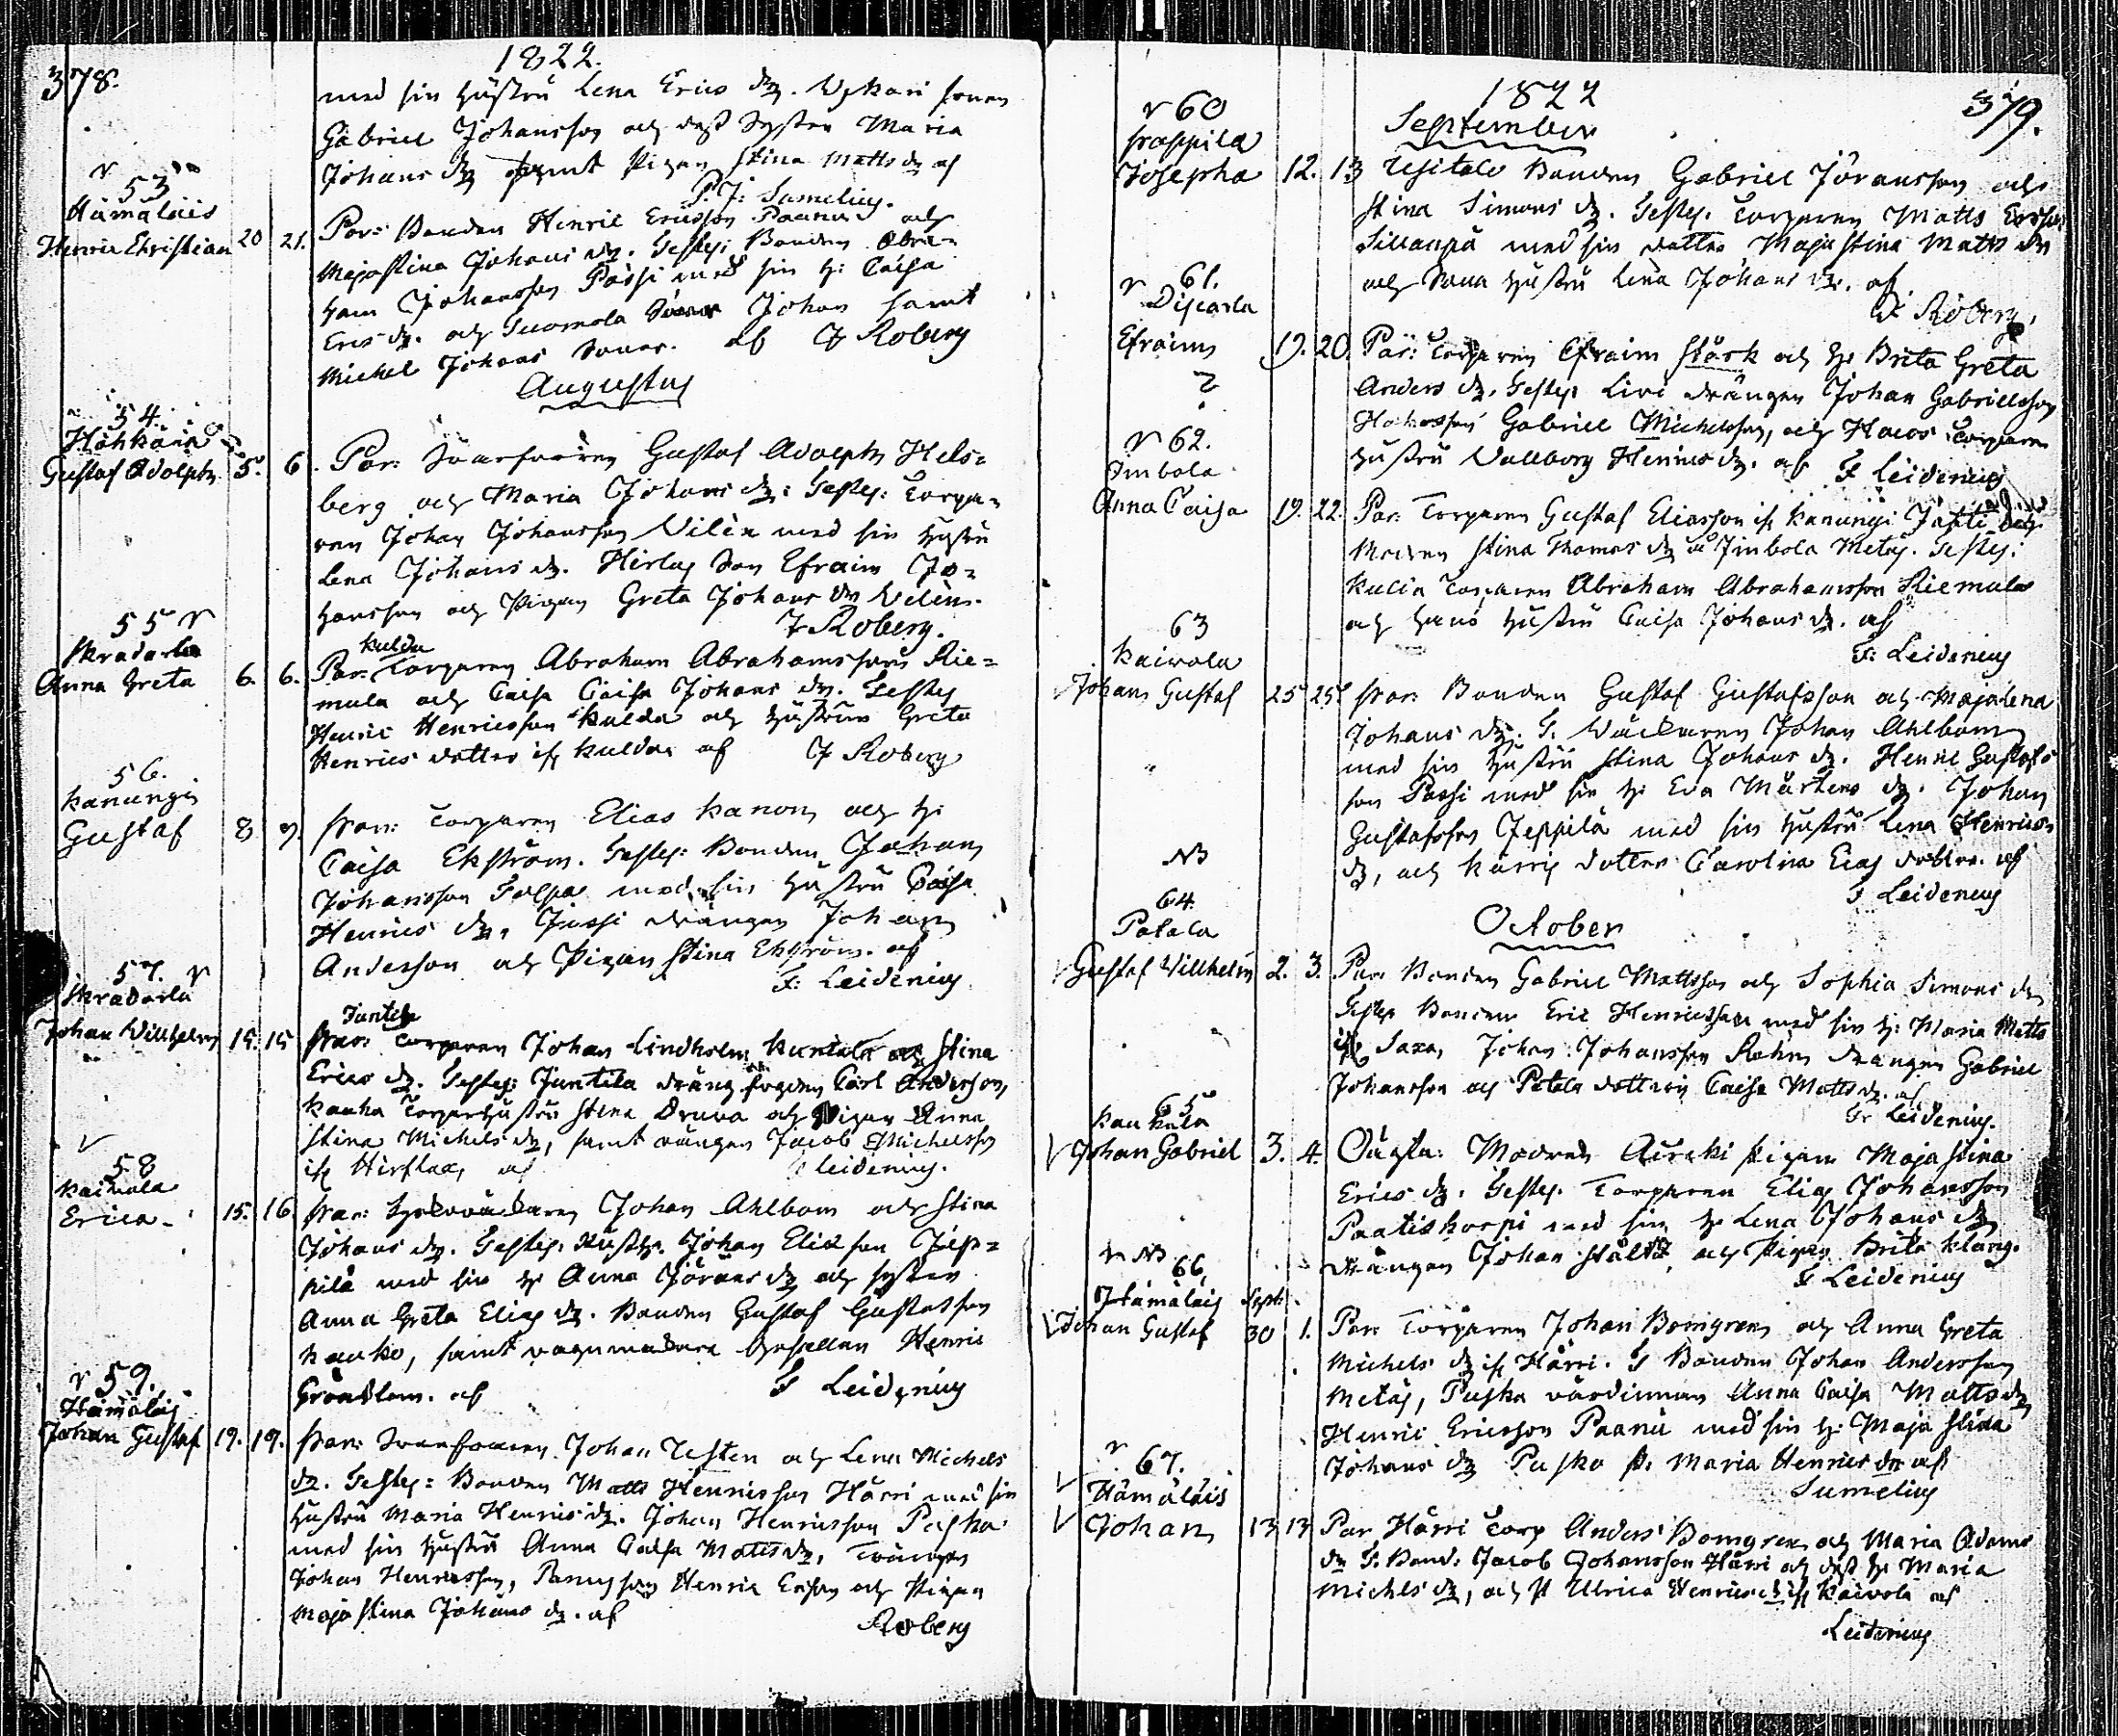 378.
1822.
med sin hustru Lena Erics dr.
Gabriel Johansson och dess Syster Maria
Johans dr samt Pigan Stina Matts dr af
P. J: Sumelius.
53
Hämäläis
Henric Christian 20 21. Par: Bonden Henric Ericsson Paanu och
Majastina Johans dr. Testes: Bonden Abra-
ham Johansson Passi med sin h: Caisa
Erics dr. och Suomola Johan samt
Michel Johans Söner. af J Roberg
Augustus
54.
Gustaf Adolph 5. 6. Par: Gustaf Adolph Hels-
berg och Maria Johans dr: Testes: Torpa-
ren Johan Johansson Vilén med sin hustru
Lena Johans dr. Son Efraim Jo-
hansson och Pigan Greta Johans dr Vilén.
J Roberg.
55
Skradarla
Anna Greta 6. 6. Par: Kulda Torparen Abraham Abrahamsson Rie-
mula och Caisa Caisa Johans dr. Testes
Henric Henricsson Kulda och hustrun Greta
Henrics dotter if. Kulda af J Roberg
56.
Kanungi
Gustaf 8 9. Par: Torparen Elias Kanon och h:
Caisa Ekström. Testes: Bonden Johan
Johansson med sin hustru Caisa
Henrics dr, Jussi drängen Johan
Andersson och Pigan Stina Ekström. af
F: Leidenius
57.
Skradarla
Johan Willhelm 15. 15 Par: Juntila Torparen Johan Lindholm och Stina
Erics dr. Testes: Juntila dräng fogden Carl Andersson,
Kauha Torparhustru Stina Druva och Pigan Anna
Stina Michels dr, samt drängen Jacob Michelsson
if. af Leidenius.
58
Kaivola
Erica 15. 16 Par: Johan Ahlbom och Stina
Johans dr. Testes. Johan Elia son Jäp-
pilä med sin h: Anna Jörans dr och syster
Anna Greta Elias dr. Bonden Gustaf Gustafsson
Kauko, samt Gesällen Henric
Grönblom. af F Leidenius
59.
Hämäläis
Johan Gustaf 19. 19. Par: Johan Testen och Lena Michels
dr. Testes: Bonden Matts Henricsson Härri med sin
hustru Maria Henrics dr. Johan Henricsson Puska
med sin hustru Anna Caisa Matts dr, Drängen
Johan Henricsson, Henric Ericson och Pigan
Maja Stina Johans dr. af
Roberg
379.
1822
September
60
Pappila
Josepha 12. 13 Usitalo Bonden Gabriel Jöransson och
Stina Simons dr. Testes. Torparen Matts Ersson
Sillanpä med sin dotter Maja Stina Matts dr
och hustru Lena Johans dr. af
J Roberg
61.
Discarla
Efraim 19. 20. Par: Torparen Efraim Stark och h: Brita Greta
Anders dr. Testes: Livi drängen Johan Gabrielsson
Gabriel Michelsson, och Torpare
hustru Vallborg Henrics dr. af F Leidenius
62.
Imbola
Anna Caisa 19. 22. Par: Torparen Gustaf Eliasson if. Kanungi och
Modren Stina Thomas dr Imbola Metäs. Testes:
Kulia Torparen Abraham Abrahamsson Riemula
och hans hustru Caisa Johans dr. af
F: Leidenius
63
Kaivola
Johan Gustaf 25 25. Par: Bonden Gustaf Gustafsson och Majalena
Johans dr. T. Johan Ahlbom
med sin hustru Stina Johans dr. Henric Gustafs-
son Passi med sin h: Eva Mårtens dr. Johan
Gustafsson Jeppilä med sin hustru Lena Henrics
dr, och dotter Carolina Elias dotter. af
F Leidenius
NB
October
64.
Palala
Gustaf Villhelm 2. 3. Par: Bonden Gabriel Mattsson och Sophia Simons dr
Testes Bonden Eric Henricsson med sin h: Maria Matts
Saxa, Johan Johansson drängen Gabriel
Johansson och dottren Caisa Matts dr. af
Fr Leidenius.
65
Kaukola
Johan Gabriel 3. 4. Oägta: Modren Pigan Maja Stina
Erics dr. Testes. Torparen Elias Johansson
Paatiskorpi med sin h: Lena Johans dr
drängen Johan Stålt, och Pigan Brita Klang.
F Leidenius
NB 66
Hämäläis Sept.
Johan Gustaf 30 1. Par: Torparen Johan Bomgren och Anna Greta
Michels dr if. Härri. T Bonden Johan Andersson
Metäs, Puska värdinnan Anna Caisa Matts dr
Henric Ericsson Paanu med sin h: Maja Stina
Johans dr Puska P. Maria Henrics dr af
Sumelius
67.
Hämäläis
Johan 13 13 Par Härri Torp Anders Bomgren och Maria Adams
dr T. Bond. Jacob Johansson Härri och dess h: Maria
Michls dr, och P Ulrica Henrics dr if. Kaivola af
Leidenius